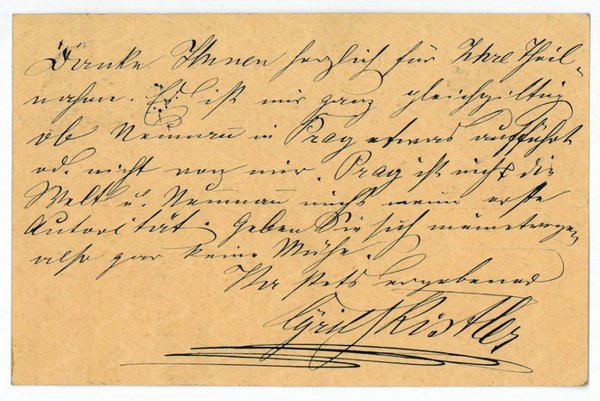 Danke Ihnen herzlich für Ihre Theil-
nahme. Es ist mir ganz gleichgiltig
ob Neumann in Prag etwas aufführt
od. nicht von mir. Prag ist nicht die
Welt u. Neumann nicht meine erste
Autorität. Geben Sie sich meinetwegen
also gar keine Mühe.
Ihr stets ergebener
Cyrill Kistler